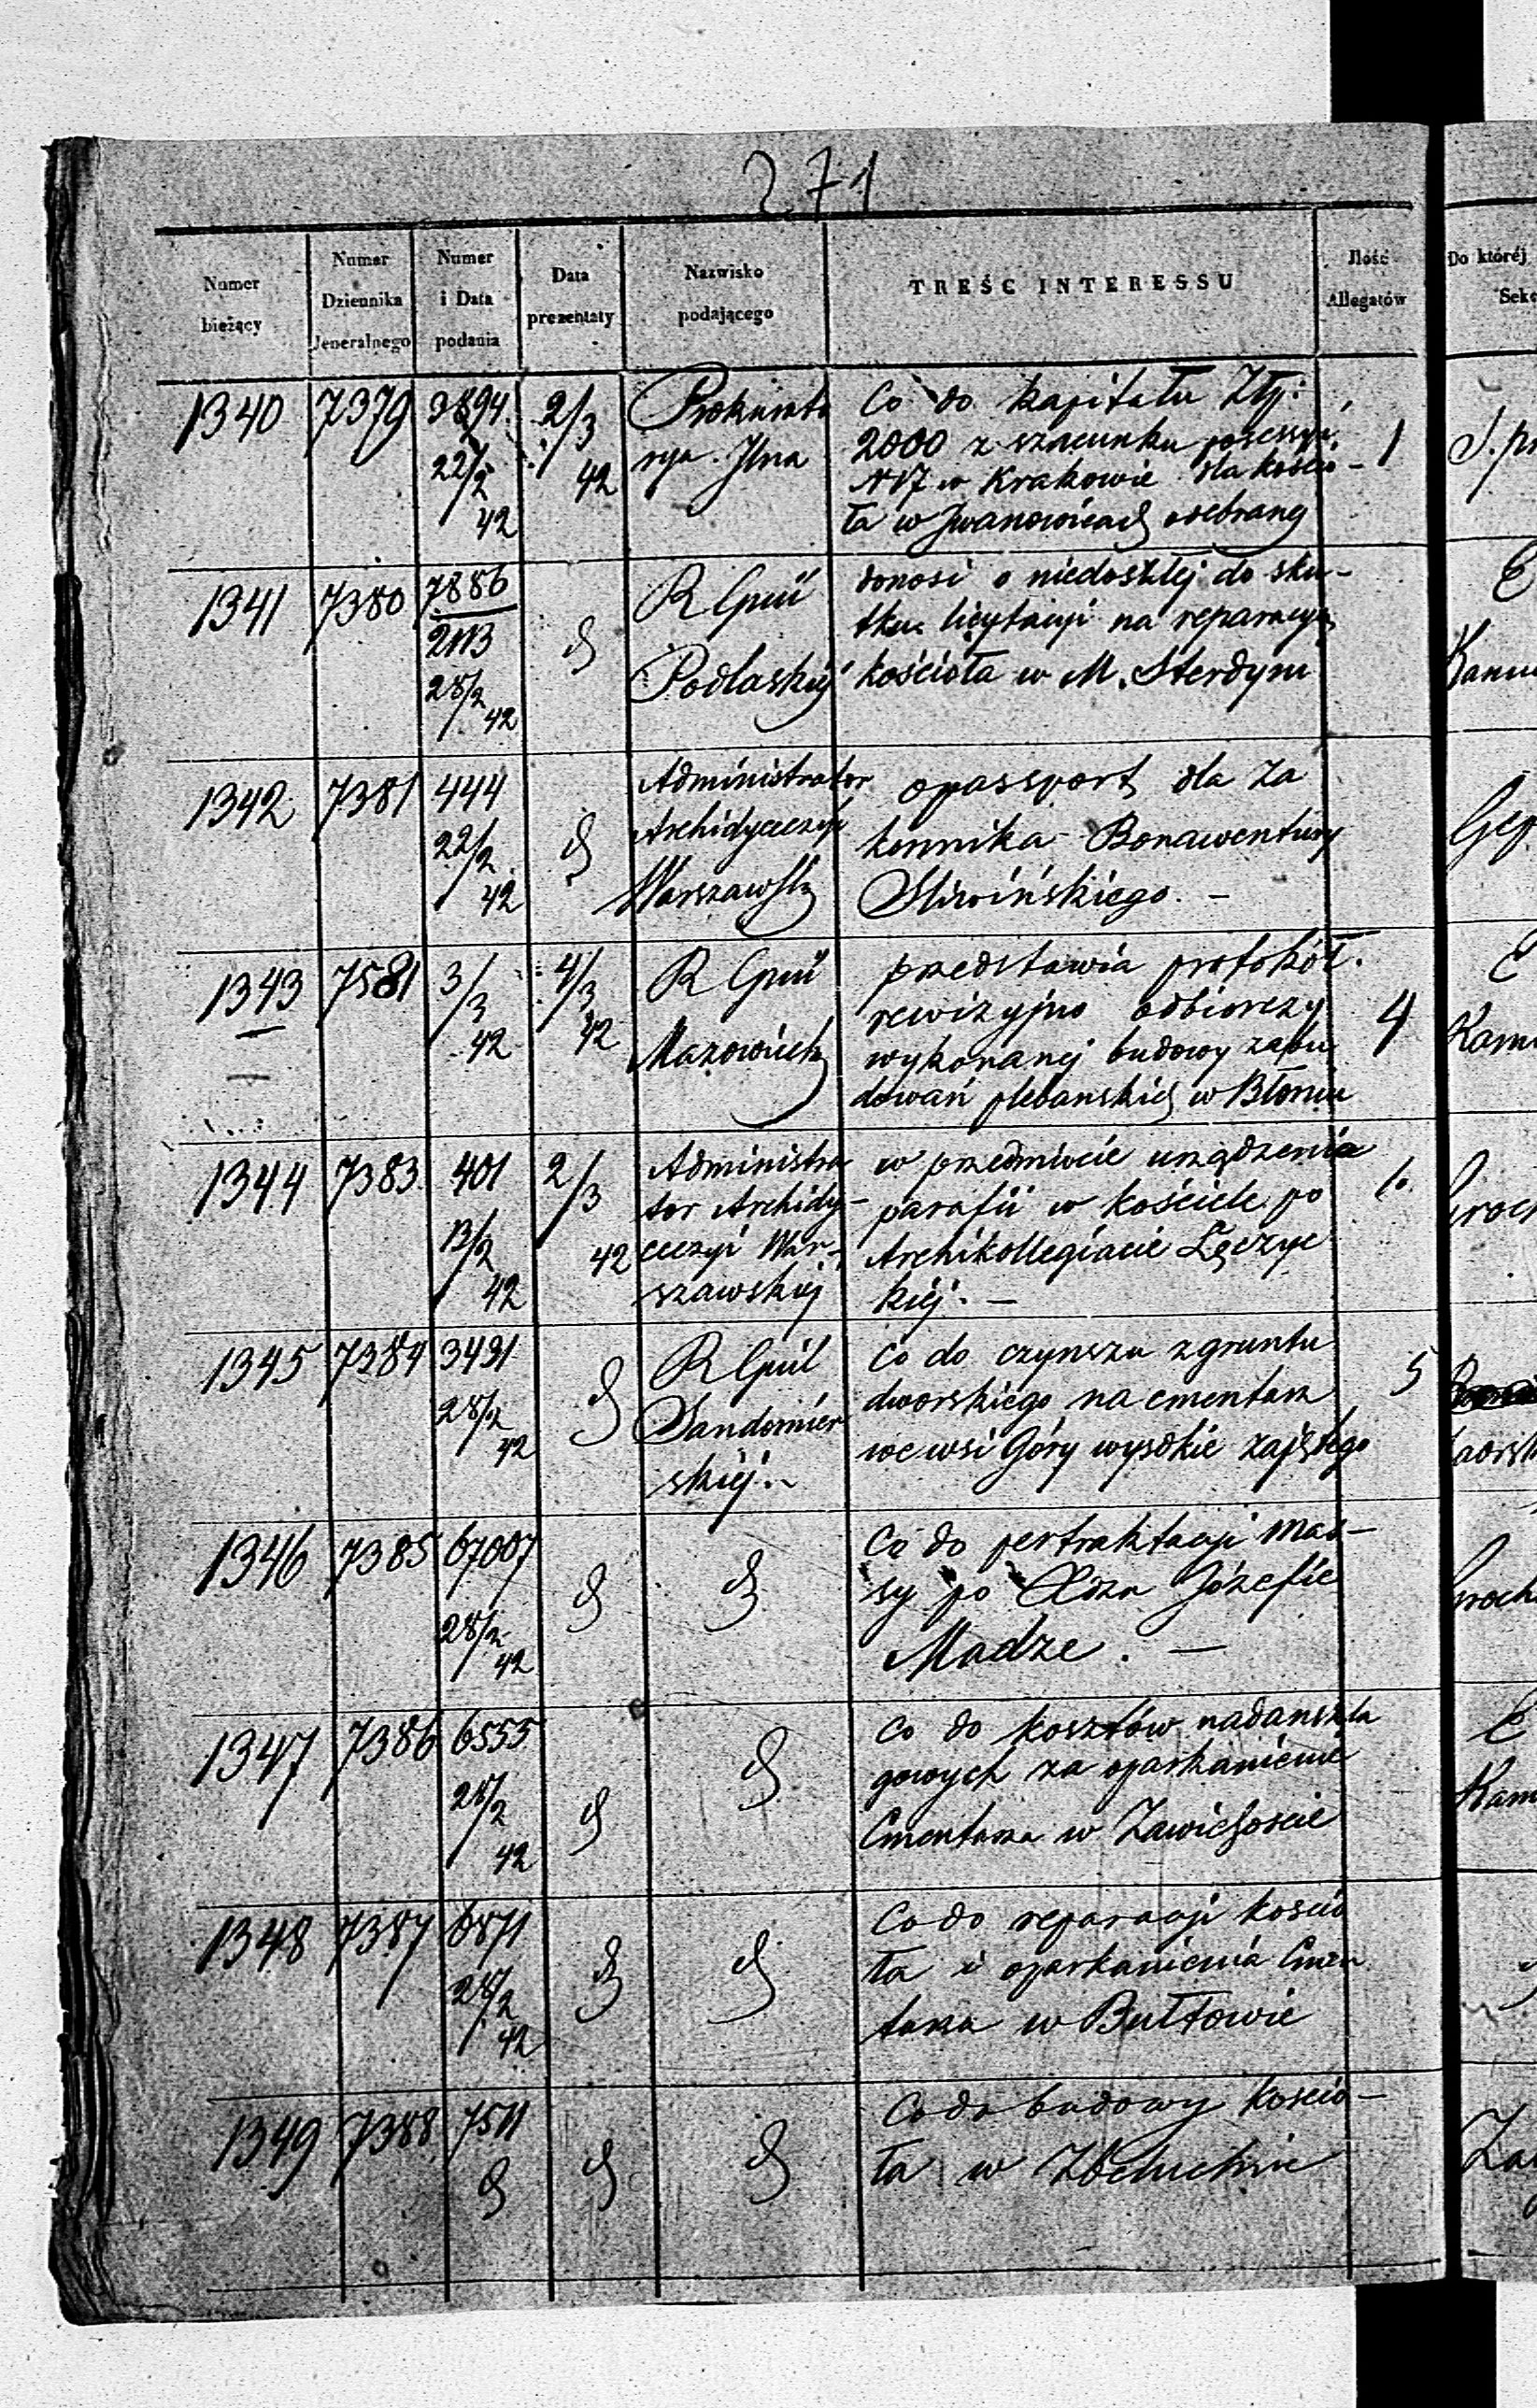 271
Numer bieżący
Numer Dziennika Jeneralnego
Numer i Data podania
Data prezentaty
Nazwisko podającego
TREŚĆ INTERESSU
Ilość Allegatów
Do której
Sekc
1340 7379 3894 22/2 42 2/3 42
Prokurato
rya
Co do kapitału Złp:
2000 z szacunku possessyi
N 17 w Krakowie dla kościo-
ła w Iwanowicach
1
1341 7380 7886 2113 28/2 42
R Gpuii
Podlaskiej
donosi o niedoszłej do sku-
tku licytacyi na reparacyą
kościoła w M. Sterdyni
1342 7381 444 22/2 42
Administrator
Archidyecezyi
Warszawsk
o passport dla Za
konnika Bonawentury
Sliwińskiego. -
1343 7581 3/3 42 4/3 42
R Gpuii
przedstawia protokół
rewizyjno odbiorczy
wykonanej budowy zabu
dowań plebanskich w Błoniu
4
1344 7383 401 13/2 42 2/3 42
Administra
tor Archidy-
ecezyi War-
szawskiej
w przedmiocie urządzenia
parafii w kościele po
Archikollegiacie Łęczyc
kiej. -
1345 7384 3431 28/2 42
R Gpul
Sandomier
skiej.
Co do czynszu z gruntu
dworskiego na cmentarz
we wsi Góry wysokie zajętego
5
1346 7385 67007 28/2 42
Co do pertraktacyi Mas-
sy po Józefie
Madze. -
1347 7386 6555 28/2 42
Co do kosztów nadanszla
gowych za oparkanienie
Cmentarza w Zawichoscie
1348 7387 6871 28/2 42
Co do reparacyi kościo
ła i oparkanienia Cmen
tarza w Bułtowie
1349 7388 7511
Co do budowy kościo-
ła w